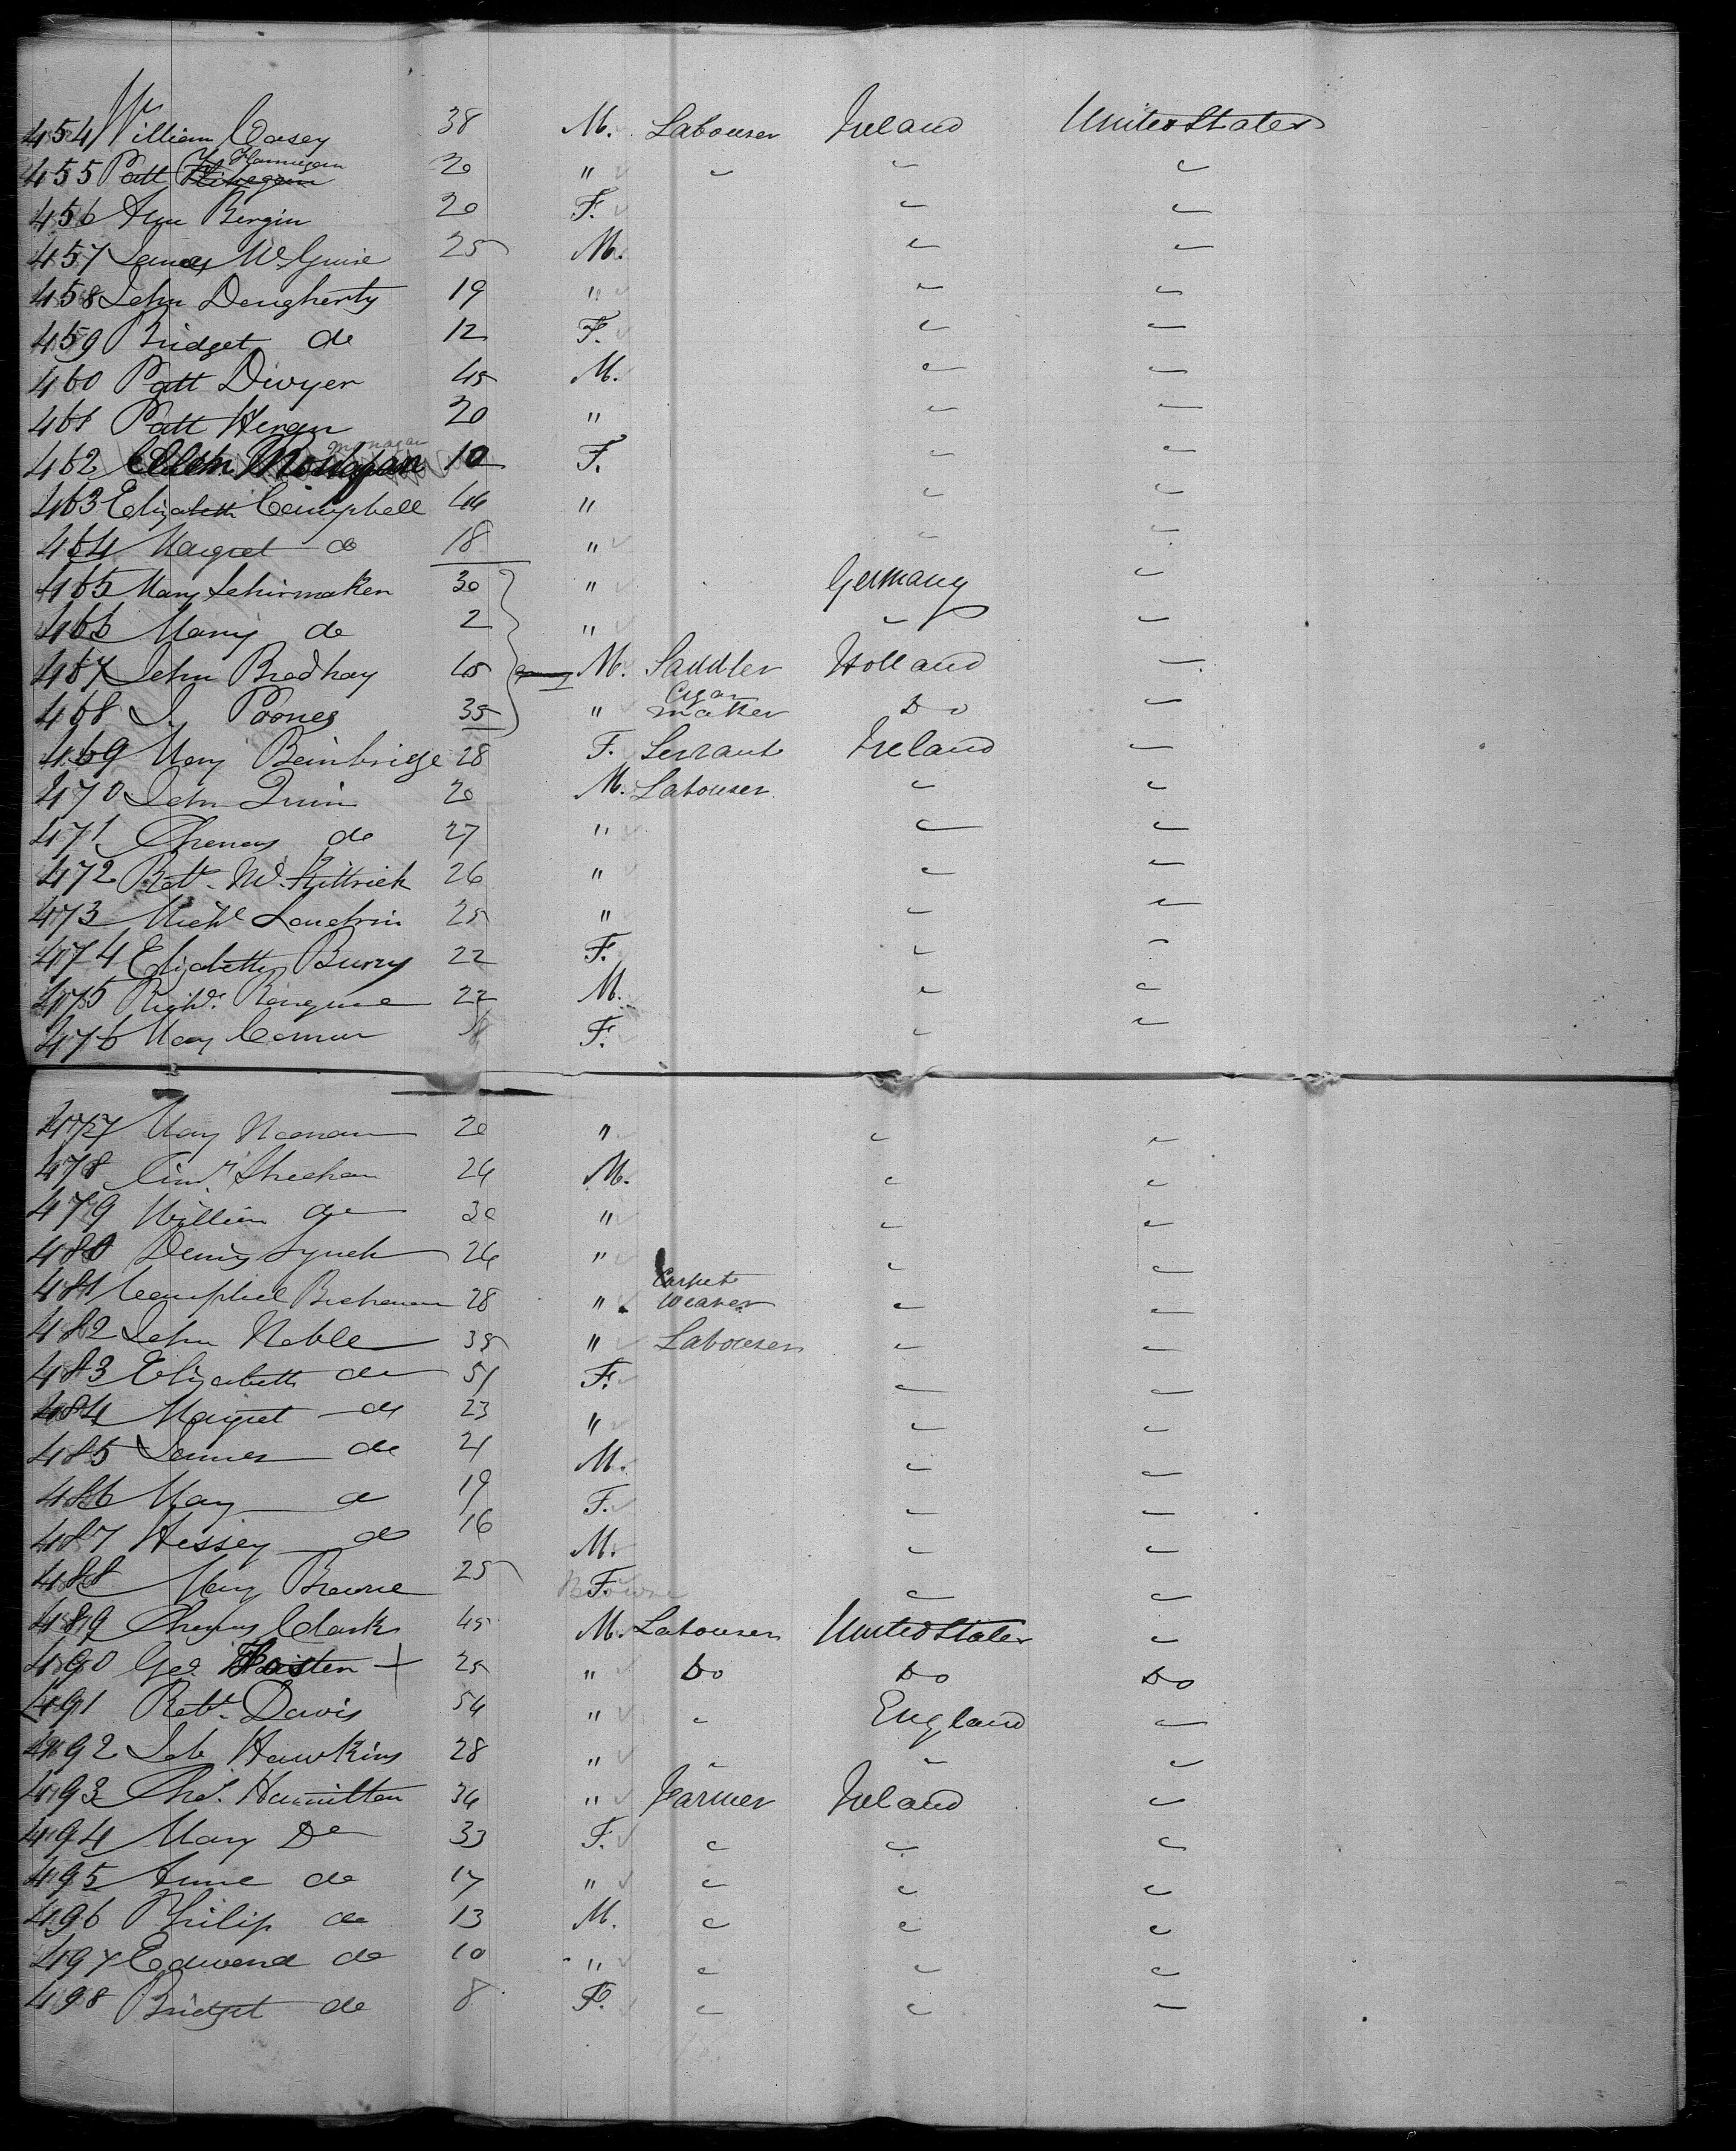 454 William Casey 38 M. Labourer Ireland United States
455 Patt Flannigan 20 " " " "
456 Ann Bergin 20 F. " "
457 James McGuire 25 M. " "
458 John Dougherty 19 " " "
459 Bridget do 12 F. " "
460 Patt Dwyer 45 M. " "
461 Patt 20 " " "
462 Ellen Monagan 10 F. " "
463 Elizabeth Campbell 44 " " "
464 Margret do 18 " " "
465 Mary Schirmaker 30 " Germany "
466 Mary do 2 " " "
467 John Bradhay 45 M. Saddler Holland "
468 J. Poones 35 " Cigar maker Do "
469 Mary Bainbridge 28 F. Servant Ireland "
470 John Quin 20 M. Labourer " "
471 Thomas do 27 " " "
472 Robt. McKittrick 26 " " "
473 Michl 25 " " "
474 Elizabeth 22 F. " "
475 Richd. 22 M. " "
476 Mary F. " "
477 Mary Noonan 20 " " "
478 Timy Sheehan 24 M. " "
479 William do 30 " " "
480 Denis Lynch 24 " " "
481 Campbel Buchanan 28 " Carpet Weaver " "
482 John Noble 35 " Labourer " "
483 Elizabeth do 51 F. " "
484 Margret do 23 " " "
485 James do 21 M. " "
486 Mary do 19 F. " "
487 Hessey do 16 M. " "
488 Mary Browne 25 F. " "
489 Thomas Clark 45 M. Labourer United States "
490 Geo. 25 " Do Do Do
491 Robt. Davis 54 " " England "
492 Job Hawkins 28 " " " "
493 Chs. Hamilton 34 " Farmer Ireland "
494 Mary Do 33 F. " " "
495 Anne do 17 " " " "
496 Philip do 13 M. " " "
497 Edward do 10 " " " "
498 Bridget do 8 F. " " "